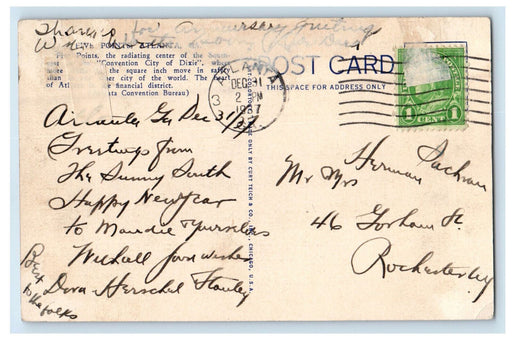 Thanks for Anniversary Greetings
FIVE POINTS, ATLANTA
Points, the radiating center of the
"Convention City of Dixie", where
more the square inch move in
than other city of the world. The heart
of Atl financial district.
ta Convention Bureau)
POST CARD
THIS SPACE FOR ADDRESS ONLY
ATLANTA
DEC 31
2 PM
1937
3
1 CENT 1
BY CURT TEICH & CO., INC., CHICAGO, U.S.A.
Atlanta Ga Dec 31/37
Greetings from
The Sunny South
Happy New Year
to Maudie & yourselves
With all good wishes
Dora Herschel Stanley
Best
to the folks
Mr & Mrs Herman
46 Gorham St.
Rochester NY